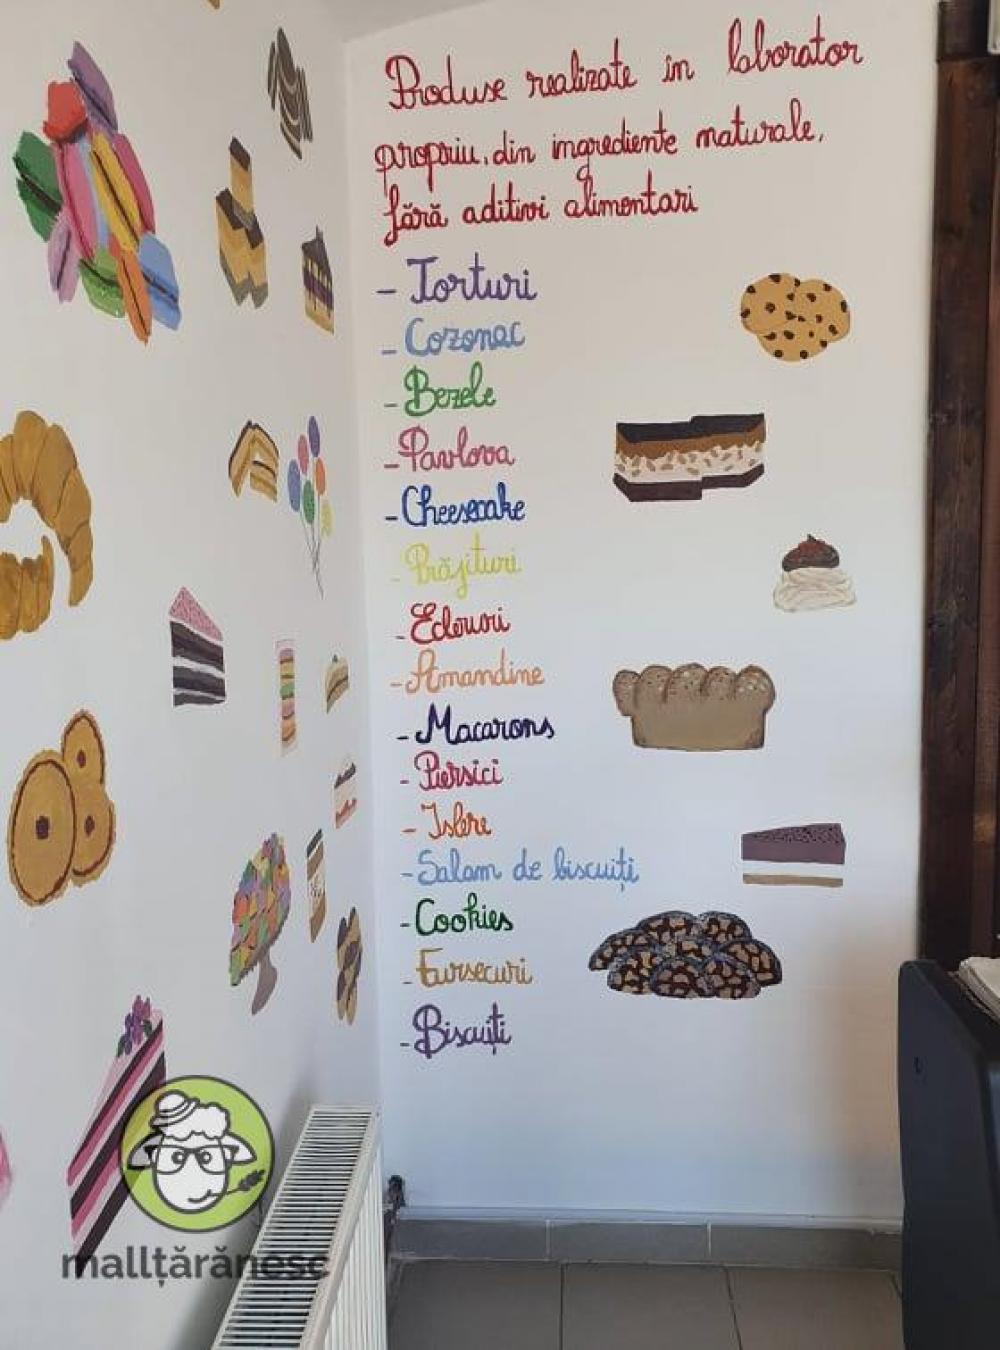 Produse realizate în laborator
propriu, din ingrediente naturale,
fără aditivi alimentari
- Torturi
- Cozonac
- Bezele
- Pavlova
- Cheesecake
- Prăjituri
- Ecleruri
- Amandine
- Macarons
- Piersici
- Islere
- Salam de biscuiți
- Cookies
- Fursecuri
- Biscuiți
mallțărănesc